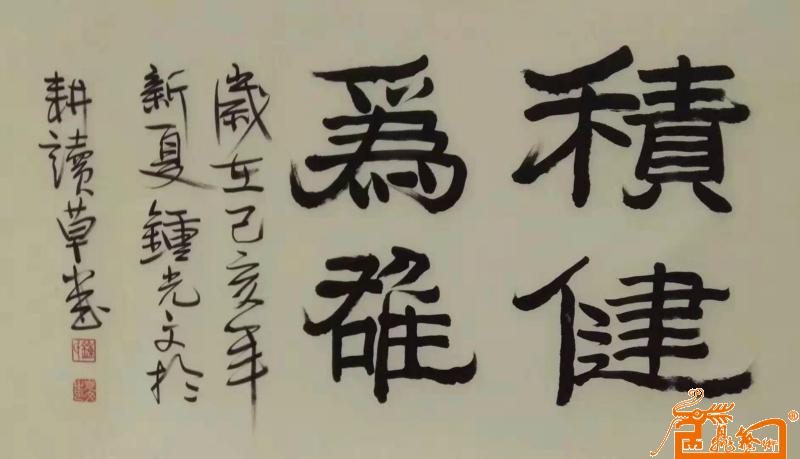 積健
為雄
歲在己亥年
新夏鍾光文於
耕讀草堂